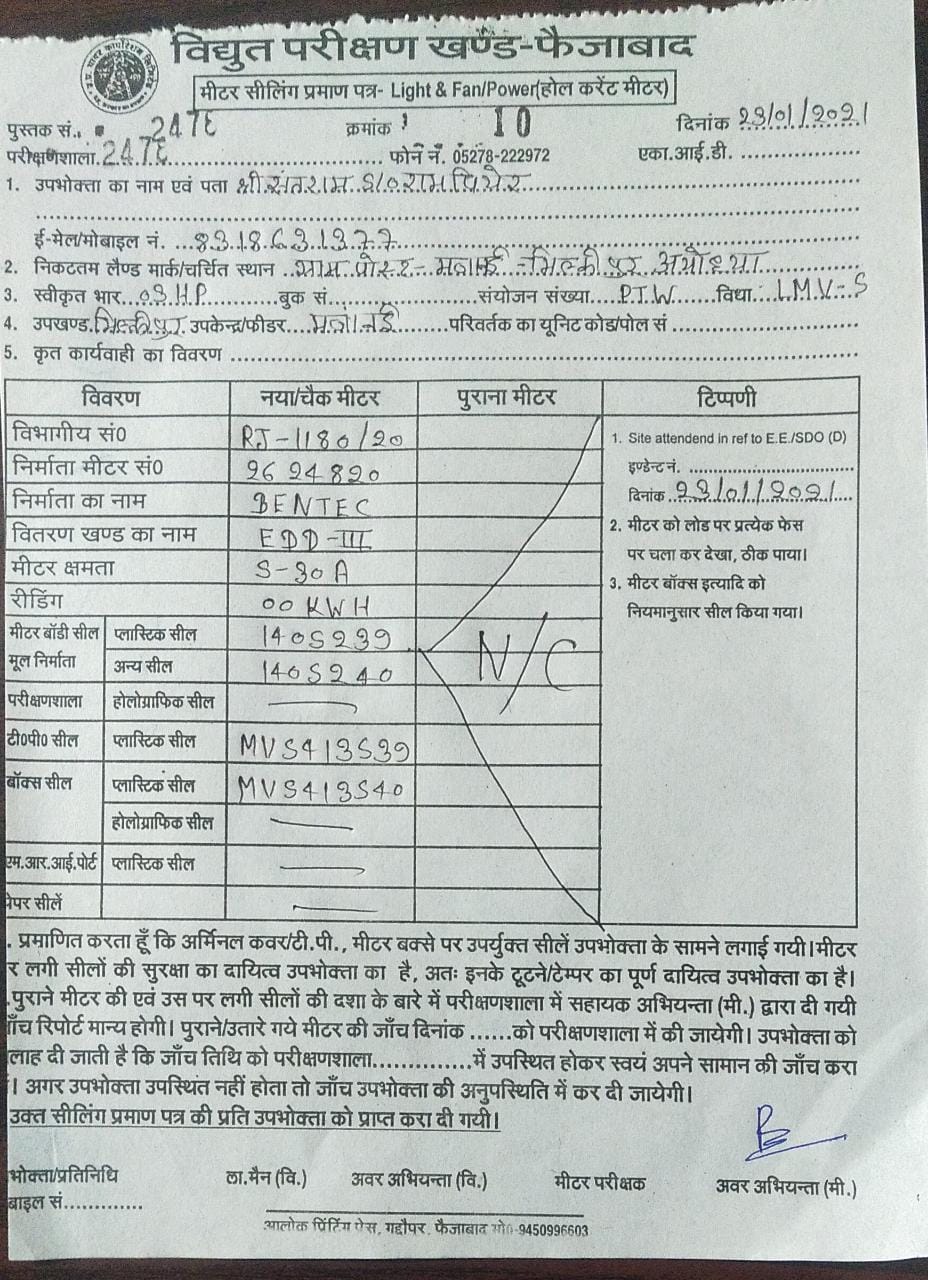 विद्युत परीक्षण खण्ड-फैजाबाद
मीटर सीलिंग प्रमाण पत्र- Light & Fan/Power(होल करेंट मीटर)
पुस्तक सं.. 247E क्रमांक 10 दिनांक 23/01/2021
परीक्षणशाला. 247E फोन नं. 05278-222972 एका.आई.डी.
1. उपभोक्ता का नाम एवं पता श्री संतराम S/o राम
ई-मेल/मोबाइल नं. 8318631377
2. निकटतम लैण्ड मार्क/चर्चित स्थान ग्राम पोस्ट - मिल्कीपुर अयोध्या
3. स्वीकृत भार 05HP बुक सं. संयोजन संख्या PTW विधा LMV-5
4. उपखण्ड मिल्कीपुर उपकेन्द्र/फीडर परिवर्तक का यूनिट कोड/पोल सं
5. कृत कार्यवाही का विवरण
विवरण नया/चैक मीटर पुराना मीटर टिप्पणी
विभागीय सं0 RJ-1180/20
निर्माता मीटर सं0 2624820
निर्माता का नाम BENTEC
वितरण खण्ड का नाम EDD-III
मीटर क्षमता 5-30A
रीडिंग 00 KWH
मीटर बॉडी सील प्लास्टिक सील 1405239
मूल निर्माता अन्य सील 1405240
N/C
परीक्षणशाला होलोग्राफिक सील
टी0पी0 सील प्लास्टिक सील MVS413539
बॉक्स सील प्लास्टिक सील MVS413540
होलोग्राफिक सील
एम.आर.आई.पोर्ट प्लास्टिक सील
पेपर सीलें
1. Site attendend in ref to E.E./SDO (D)
इण्डेन्ट नं.
दिनांक 23/01/2021
2. मीटर को लोड पर प्रत्येक फेस
पर चला कर देखा, ठीक पाया।
3. मीटर बॉक्स इत्यादि को
नियमानुसार सील किया गया।
. प्रमाणित करता हूँ कि अर्मिनल कवर/टी.पी., मीटर बक्से पर उपर्युक्त सीलें उपभोक्ता के सामने लगाई गयी।मीटर
र लगी सीलों की सुरक्षा का दायित्व उपभोक्ता का है, अतः इनके टूटने/टेम्पर का पूर्ण दायित्व उपभोक्ता का है।
.पुराने मीटर की एवं उस पर लगी सीलों की दशा के बारे में परीक्षणशाला में सहायक अभियन्ता (मी.) द्वारा दी गयी
ाँच रिपोर्ट मान्य होगी। पुराने/उतारे गये मीटर की जाँच दिनांक ......को परीक्षणशाला में की जायेगी। उपभोक्ता को
लाह दी जाती है कि जाँच तिथि को परीक्षणशाला..............में उपस्थित होकर स्वयं अपने सामान की जाँच करा
। अगर उपभोक्ता उपस्थित नहीं होता तो जाँच उपभोक्ता की अनुपस्थिति में कर दी जायेगी।
उक्त सीलिंग प्रमाण पत्र की प्रति उपभोक्ता को प्राप्त करा दी गयी।
भोक्ता/प्रतिनिधि ला.मैन (वि.) अवर अभियन्ता (वि.) मीटर परीक्षक अवर अभियन्ता (मी.)
बाइल सं.............
आलोक प्रिंटिंग प्रेस, गद्दौपर, फैजाबाद मो0-9450996603